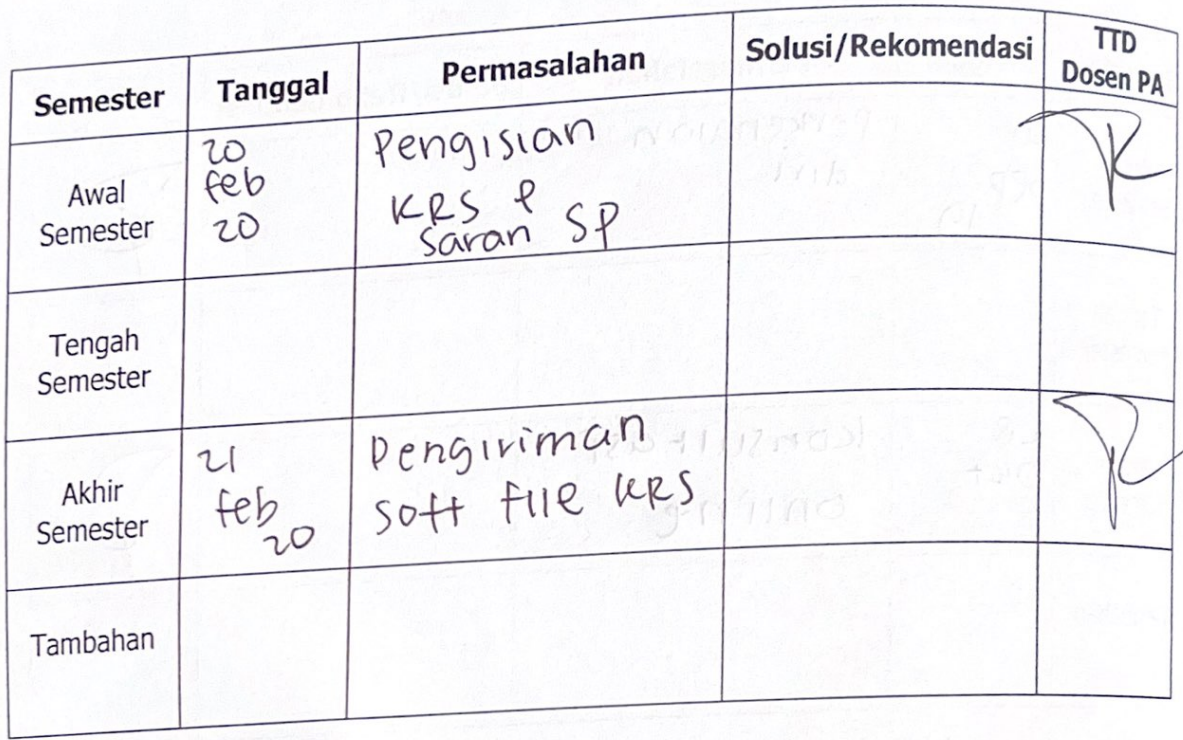 Semester Tanggal Permasalahan Solusi/Rekomendasi TTD
Dosen PA
Awal
Semester
20
feb
20
Pengisian
KRS &
Saran SP
Tengah
Semester
Akhir
Semester
21
feb
20
Pengiriman
soft file KRS
Tambahan